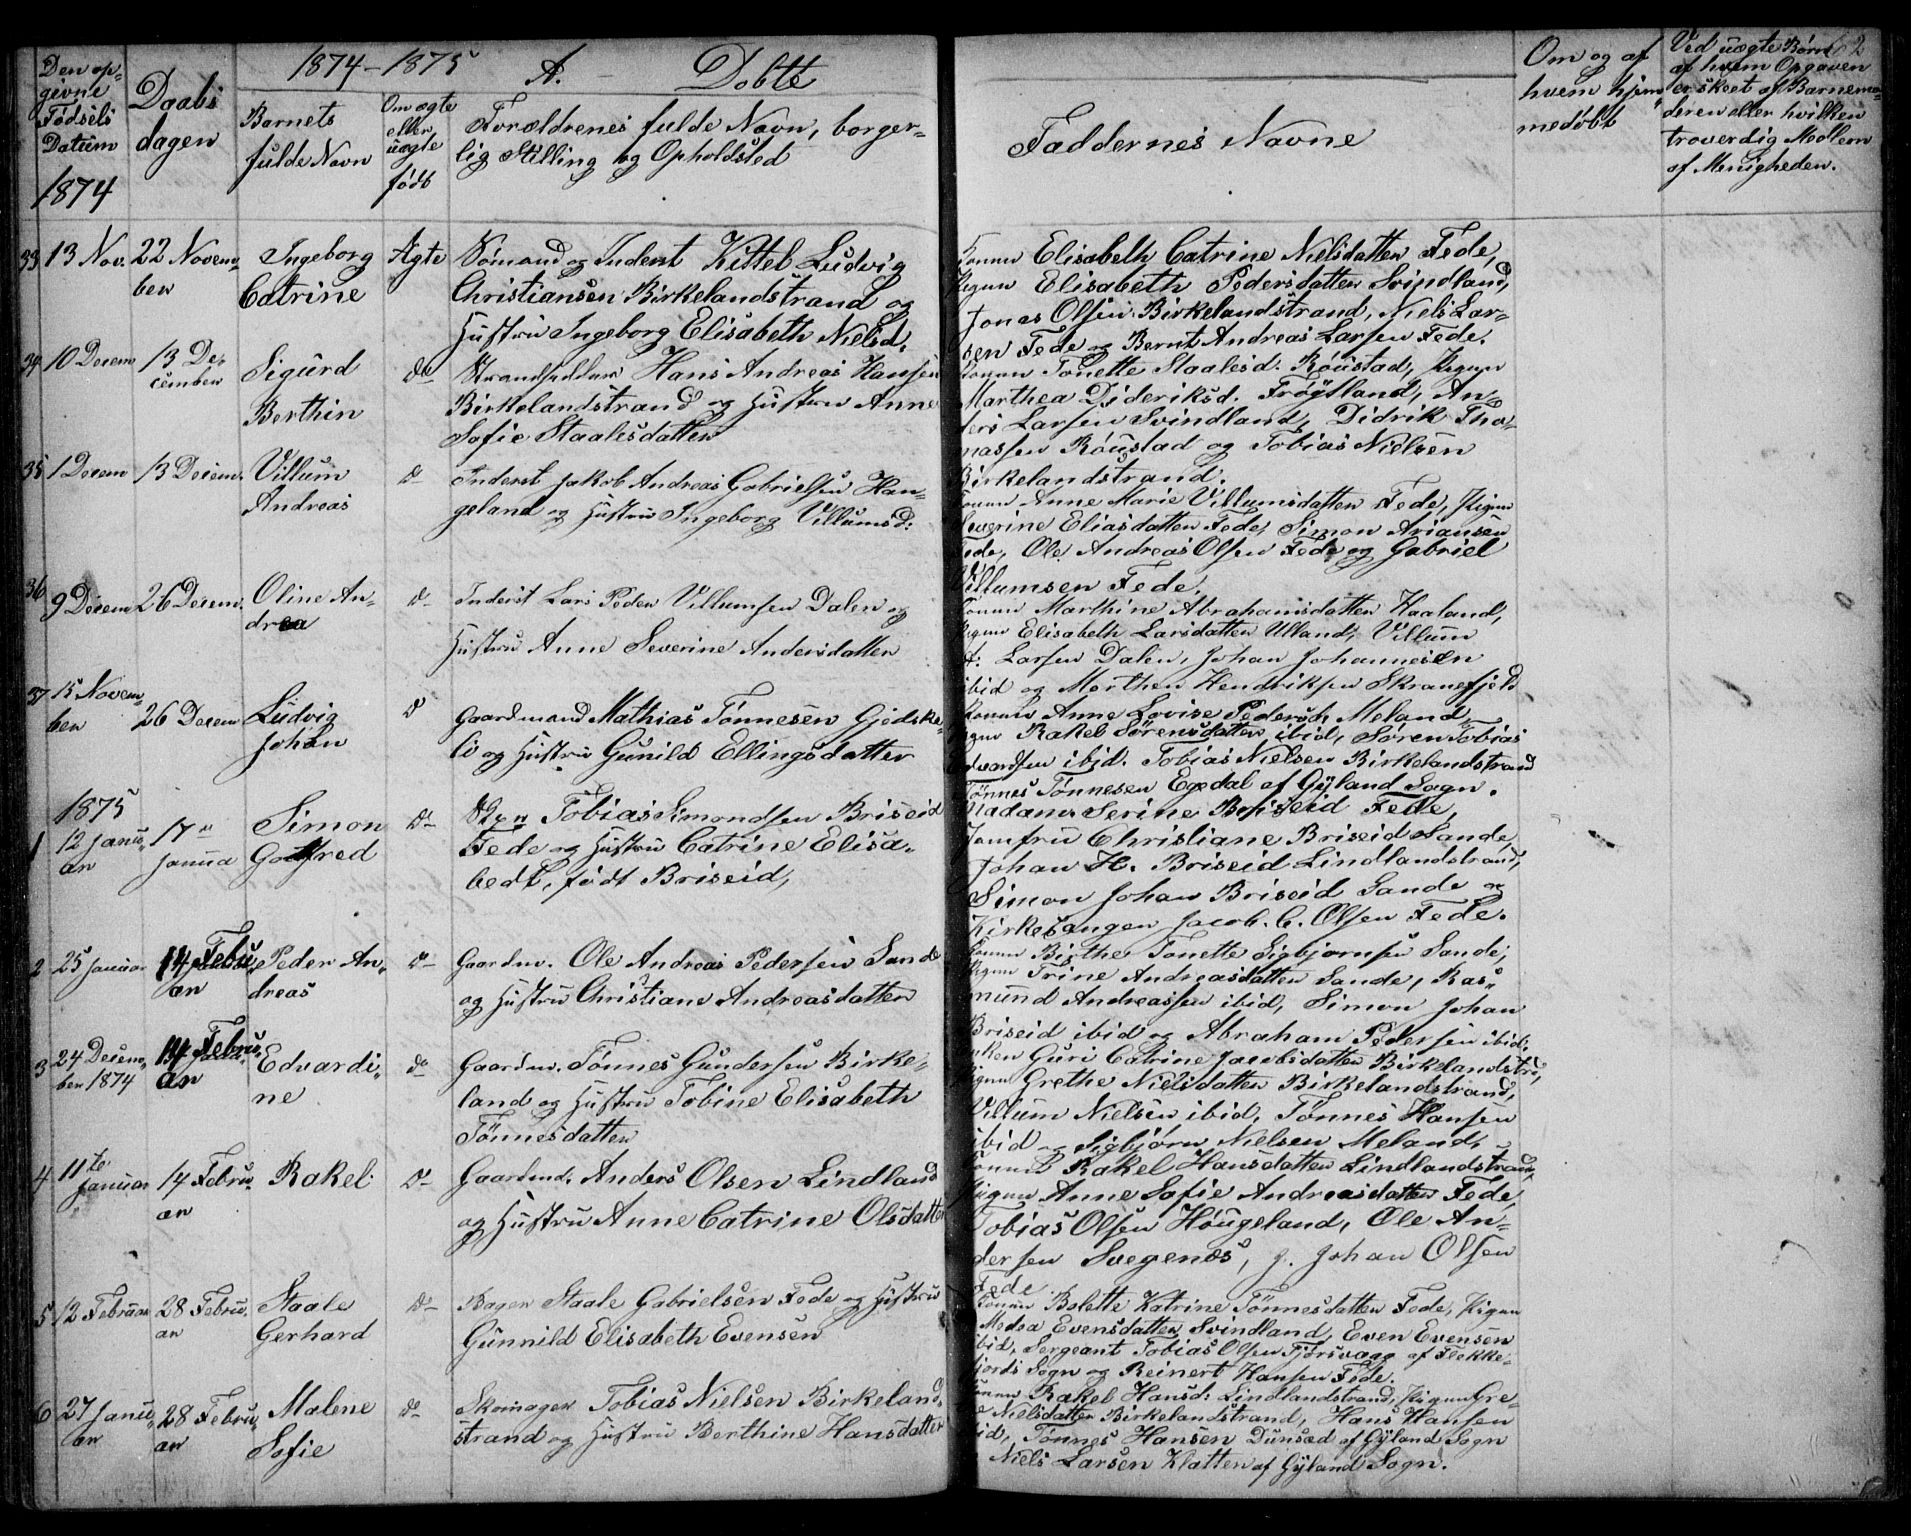 1874 – 1875 A. – Døbte
62
Den op-
givne
Fødsels
Datum
1874
Daabs
dagen
Barnets
fulde Navn
Om ægte
eller
uægte
født
Forældrenes fulde Navn, borger-
lig Stilling og Opholdsted
Faddernes Navne
Om og af
hvem hjem-
medøbt
Ved uægte Børn
af hvem Opgaven
er skeet af Barnemo-
deren eller hvilken
troverdig Medlem
af Menigheden.
33 13 Nov. 22 Novem-
ber
Ingeborg
Catrine
Ægte
Sømand og Inderst Kittel Ludvig
Christiansen Birkelandstrand og
Hustru Ingeborg Elisabeth Nielsd.
Konen Elisabeth Catrine Nielsdatter Fede,
Pigen Elisabeth Pedersdatter Svindland,
Jonas Olsen Birkelandstrand, Niels Lar-
sen Fede og Bernt Andreas Larsen Fede.
34 10 Decem 13 De-
cember
Sigurd
Berthin
Do
Strandsidder Hans Andreas Hansen
Birkelandstrand og Hustru Anne
Sofie Staalesdatter
Konen Tonette Staalesd. Röustad, Pigen
Marthea Dideriksd. Frøÿtland, An-
ders Larsen Svindland, Didrik Tho-
massen Röustad og Tobias Nielsen
Birkelandstrand.
35 1 Decem 13 Decem.
Villum
Andreas
Do
Inderst Jakob Andreas Gabrielsen Han-
geland og Hustru Ingeborg Villumsd:
Konen Anne Marie Villumsdatter Fede, Pigen
Severine Eliasdatter Fede, Simon Ariansen
Fede, Ole Andreas Olsen Fede og Gabriel
Villumsen Fede.
36 9 Decem 26 Decem.
Oline An-
drea
Do
Inderst Lars Peder Villumsen Dalen og
Hustru Anne Severine Andersdatter
Konen Marthine Abrahamsdatter Haaland,
Pigen Elisabeth Larsdatter Ulland, Villum
Larsen Dalen, Johan Johannesen
ibid og Morthen Hendriksen Skranefjeld
37 15 Novem-
ber
26 Decem
Ludvig
Johan
Do
Gaardmand Mathias Tønnesen Gjedske-
li og Hustru Gunild Ellingsdatter
Konen Anne Lovise Pedersd. Meland,
Pigen Rakel Sørensdatter ibid, Søren Tobias
Edvardsen ibid. Tobias Nielsen Birkelandstrand
Tønnes Tønnesen Egedal af Gÿland Sogn.
1875
1 12 Janu-
ar
17"
Janua
Simon
Gotfred
Do
Tobias Simondsen Briseid
Fede og Hustru Catrine Elisa-
bedt, født Briseid,
Madam Serine Briseid Fede,
Jomfru Christiane Briseid Sande,
Johan H. Briseid Lindlandstrand,
Simon Johan Briseid Sande og
Kirkesanger Jacob. C. Olsen Fede.
2 25 Januar 14 Febru-
ar
Peder An-
dreas
Do
Gaardm. Ole Andreas Pedersen Sande
og Hustru Christiane Andreasdatter
Konen Birthe Tonette Sigbjørnsen Sande,
Pigen Trine Andreasdatter Sande, Ras-
mund Andreassen ibid, Simon Johan
Briseid ibid og Abraham Pedersen ibid.
3 24 Decem-
ber 1874
14 Febru-
ar
Edvardi-
ne
do
Gaardm. Tønnes Gundersen Birke-
land og Hustru Tobine Elisabeth
Tønnesdatter
Enken Guri Catrine Jacobsdatter Birkelandstrd,
Pigen Grethe Nielsdatter Birkelandstrand,
Villum Nielsen ibid, Tønnes Hansen
ibid og Sigbjørn Nielsen Meland,
4 11te
Januar
14 Febru-
ar
Rakel
Do
Gaardmd. Anders Olsen Lindland
og Hustru Anne Catrine Olsdatter
Konen Rakel Hansdatter Lindlandstrand,
Pigen Anne Sofie Andreasdatter Fede,
Tobias Olsen Høugeland, Ole An-
dersen Svegenæs, J. Johan Olsen
Fede
5 12 Februar 28 Febru-
ar
Staale
Gerhard
Do
Bager Staale Gabrielsen Fede og Hustru
Gunnild Elisabeth Evensen
Konen Bolette Katrine Tønnesdatter Fede, Pigen
Medea Evensdatter Svindland, Even Evensen
ibid, Sergeant Tobias Olsen Tjørsvaag af Flekke-
fjords Sogn og Reinert Hansen Fede.
6 27 Janu-
ar
28 Febru-
ar
Malene
Sofie
do
Skomager Tobias Nielsen Birkeland-
strand og Hustru Berthine Hansdatter
Konen Rakel Hansd: Lindlandstrand, Pigen Gre-
the Nielsdatter Birkelandstrand, Hans Hansen
ibid, Tønnes Hansen Dunsæd af Gÿland Sogn
Niels Larsen Klatten af Gÿland Sogn.